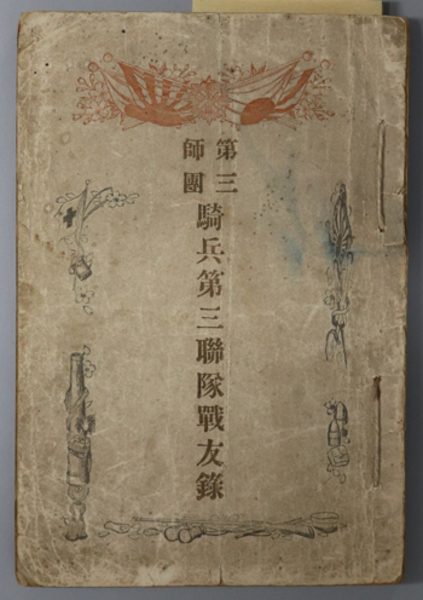 第三
師團
騎兵第三聯隊戰友錄